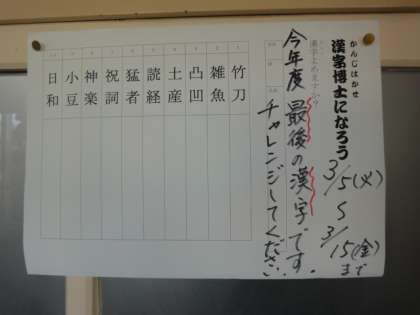 かんじはかせ
漢字博士になろう
3/5(火)
〜
3/15(金)
まで
漢字よめますか?
今年度最後の漢字です。
チャレンジしてください。
竹刀
雑魚
凸凹
土産
読経
猛者
祝詞
神楽
小豆
日和